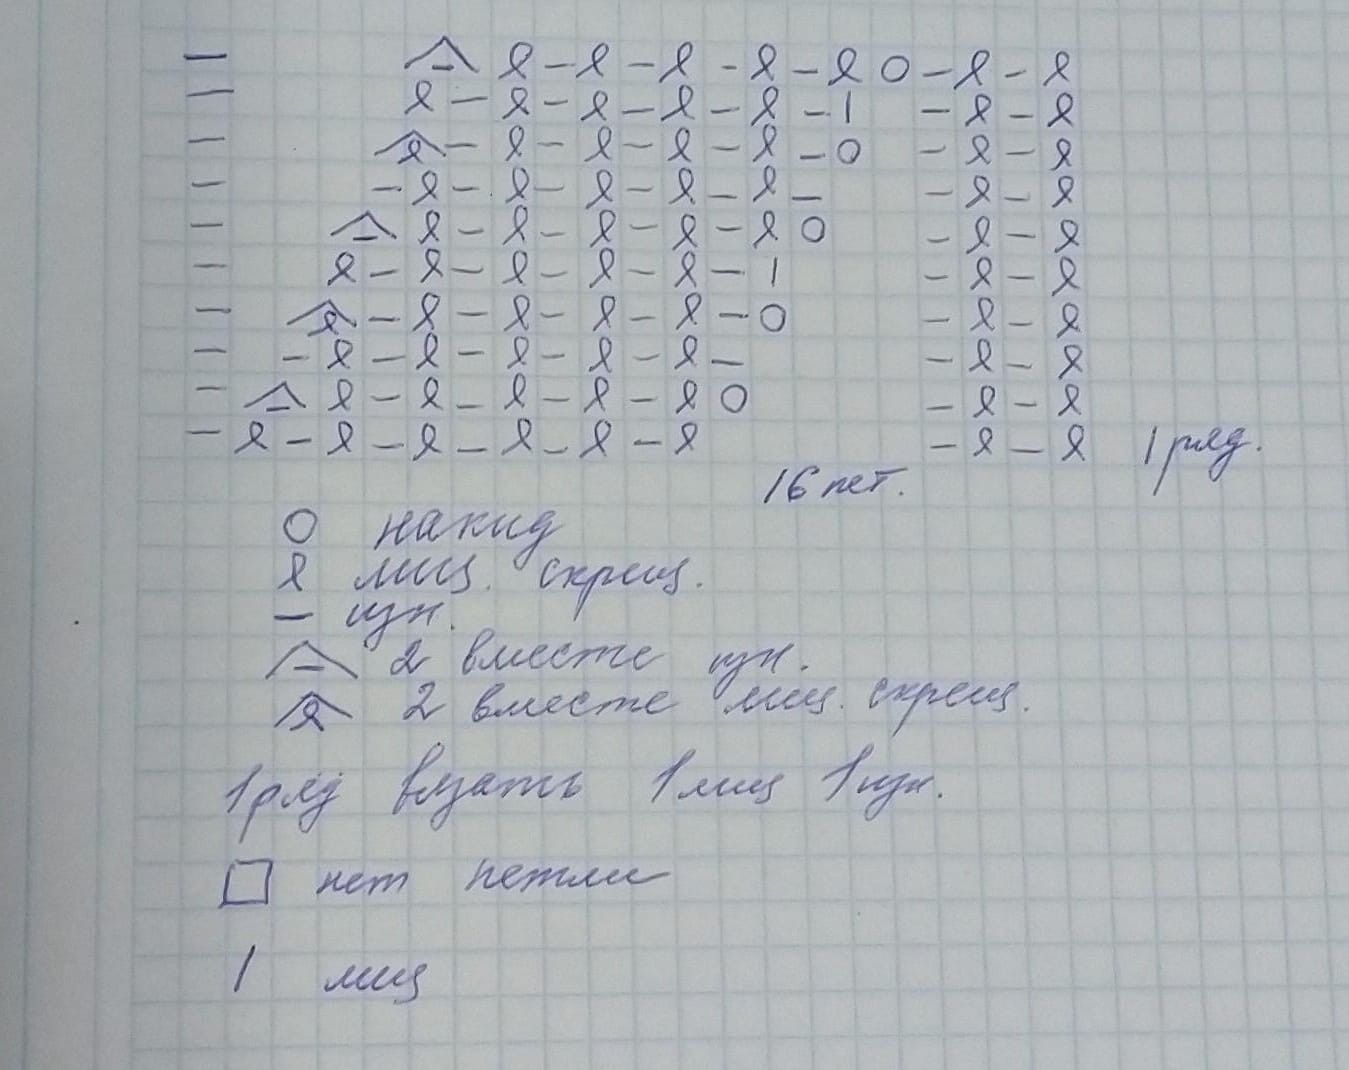 1 ряд.
16 пет.
O накид
лиц. скрещ.
— изн.
2 вместе изн.
2 вместе лиц. скрещ.
1 ряд вязать 1 лиц 1 изн.
□ нет петли
| лиц